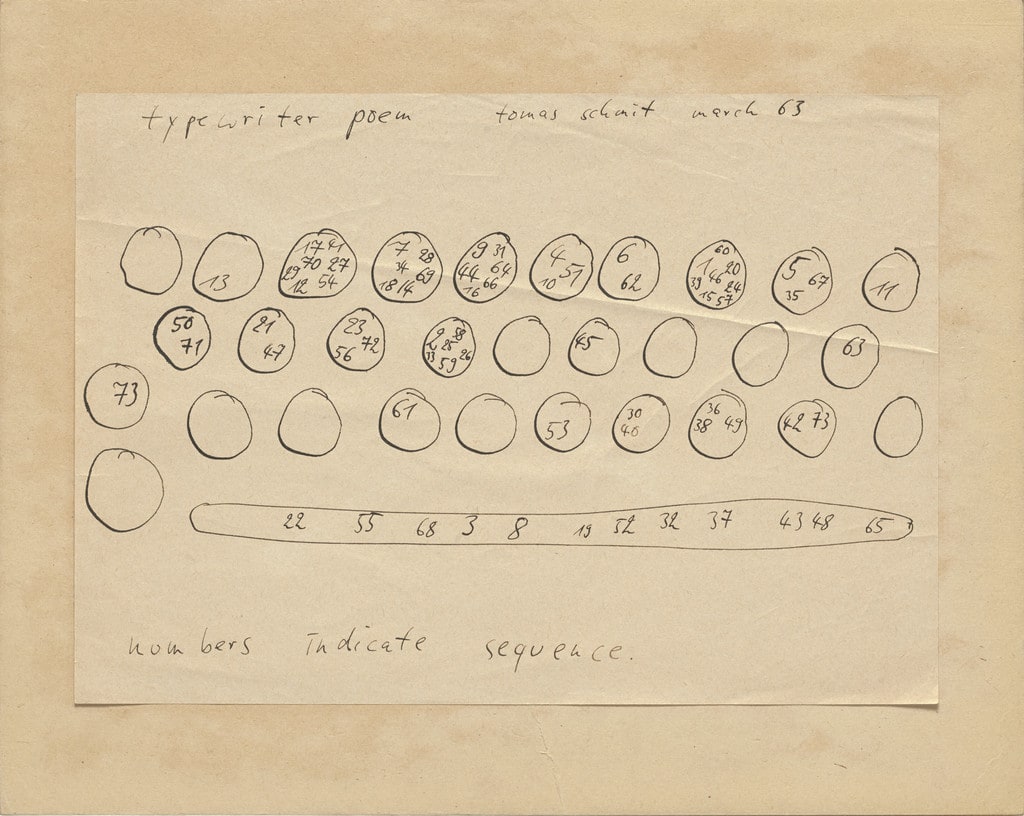 typewriter poem tomas schmit march 63
13 17 41 70 27 29 12 54 7 28 34 69 18 14 9 31 44 64 66 16 4 51 10 6 62 60 1 20 46 39 24 15 57 5 67 35 11
50 71 21 47 23 72 56 2 58 25 33 26 59 45 63
73 61 53 30 40 36 38 49 42 73
22 55 68 3 8 19 52 32 37 43 48 65
numbers indicate sequence.